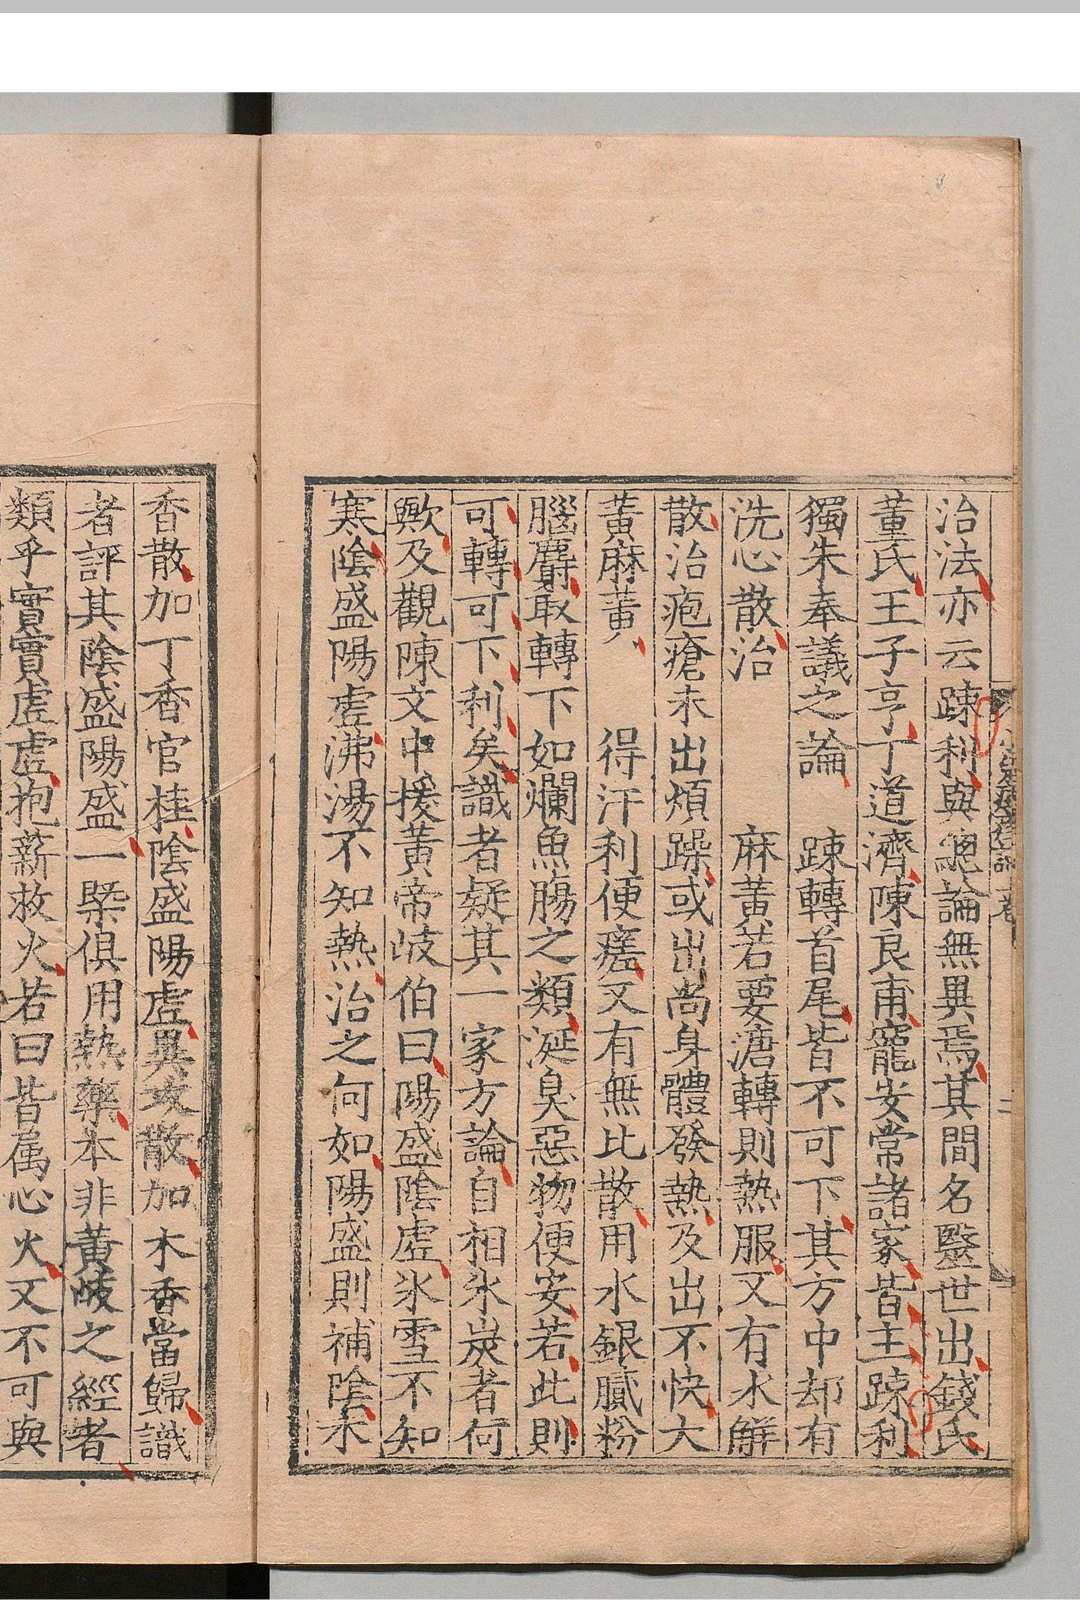 治法亦云疎利與總論無異焉其間名醫世出錢氏
董氏王子亨丁道濟陳良甫龐安常諸家皆主疎利
獨朱奉議之論　疎轉首尾皆不可下其方中却有
洗心散治　　　麻黃若要溏轉則熱服又有水解
散治疱瘡未出煩躁或出尚身體發熱及出不快大
黃麻黃　　得汗利便瘥又有無比散用水銀膩粉
腦麝取轉下如爛魚腸之類涎臭惡物便安若此則
可轉可下利矣識者疑其一家方論自相氷炭者何
歟及觀陳文中援黃帝岐伯曰陽盛陰虛氷雪不知
寒陰盛陽虛沸湯不知熱治之何如陽盛則補陰木
香散加丁香官桂陰盛陽虛異攻散加木香當歸識
者評其陰盛陽盛一槩俱用熱藥本非黃岐之經者
類乎實實虛虛抱薪救火若曰皆属心火又不可與